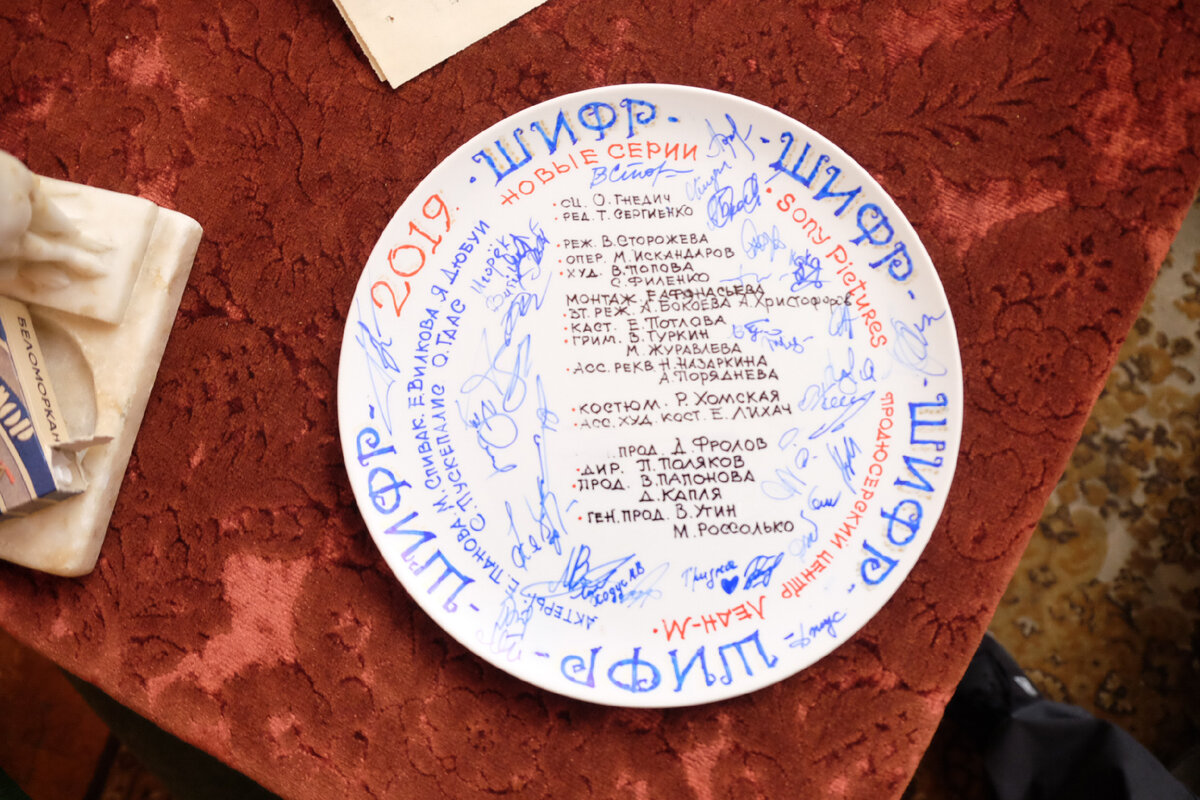 ШИФР
ШИФР
ШИФР
ШИФР
ШИФР
НОВЫЕ СЕРИИ
2019
Sony Pictures
ПРОДЮСЕРСКИЙ ЦЕНТР ЛЕАН-М.
АКТЕРЫ: Е. ПАНОВА М. СПИВАК. Е. ВИЛКОВА Я ДЮБУИ
С. ПУСКЕПАЛИС О. ГААС
ВСтор
Игорёк
СЦ. О. ГНЕДИЧ
РЕД. Т. СЕРГИЕНКО
РЕЖ. В. СТОРОЖЕВА
ОПЕР. М. ИСКАНДАРОВ
ХУД. В. ПОПОВА
С. ФИЛЕНКО
МОНТАЖ. Е АФАНАСЬЕВА
ВТ. РЕЖ. А. БОКОЕВА А. ХРИСТОФОРОВ
КАСТ. Е. ПОТЛОВА
ГРИМ. В. ТУРКИН
М. ЖУРАВЛЕВА
АСС. РЕКВ. Н. НАЗАРКИНА
А. ПОРЯДНЕВА
КОСТЮМ. Р. ХОМСКАЯ
АСС. ХУД. КОСТ. Е. ЛИХАЧ
ПРОД. Д. ФРОЛОВ
ДИР. П. ПОЛЯКОВ
ПРОД. В. ПАПОНОВА
Д. КАПЛЯ
ГЕН. ПРОД. В. УТИН
М. РОССОЛЬКО
БЕЛОМОРКАН
МОР